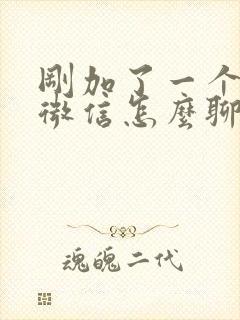 剛加了一个
微信怎麼聊
魂魄二代